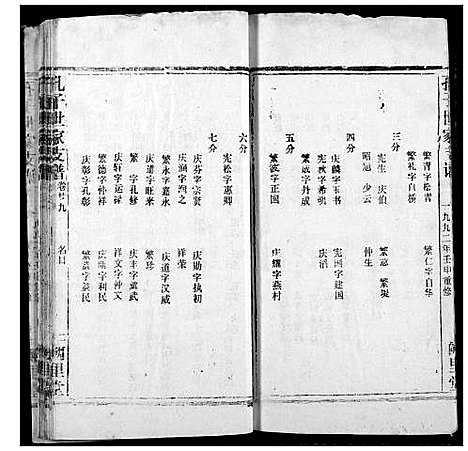 孔子世家支谱
一九九二年壬申重修
繁青字松青
繁礼字自桥 繁仁字自华
三分
宪生 庆伯 繁意 繁堤
昭旭 少云 仲生
四分
庆麟字玉书 宪洲字建国
宪孜字希钧 庆滔
繁成字丹成
五分
繁波字正国 庆耀字燕村
六分
宪松字惠卿
七分
庆芬字宗贤 庆勋字执初
庆润字润之 祥荣
繁永字嘉永 庆道字汉威
庆谓字旺来 繁珍
字孔修 庆丰字震武
庆轩字运禄 祥文字仲文
繁德字仲祥 庆瑞字利民
庆彰字孔彰 繁益字益民
孔子世家支谱 卷廿九 名目 二 阙里堂